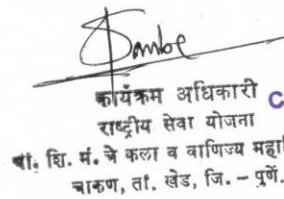 Sambe
कार्यक्रम अधिकारी C
राष्ट्रीय सेवा योजना
शि. मं. चे कला व वाणिज्य महावि
चाकण, ता. खेड, जि. – पुणें.